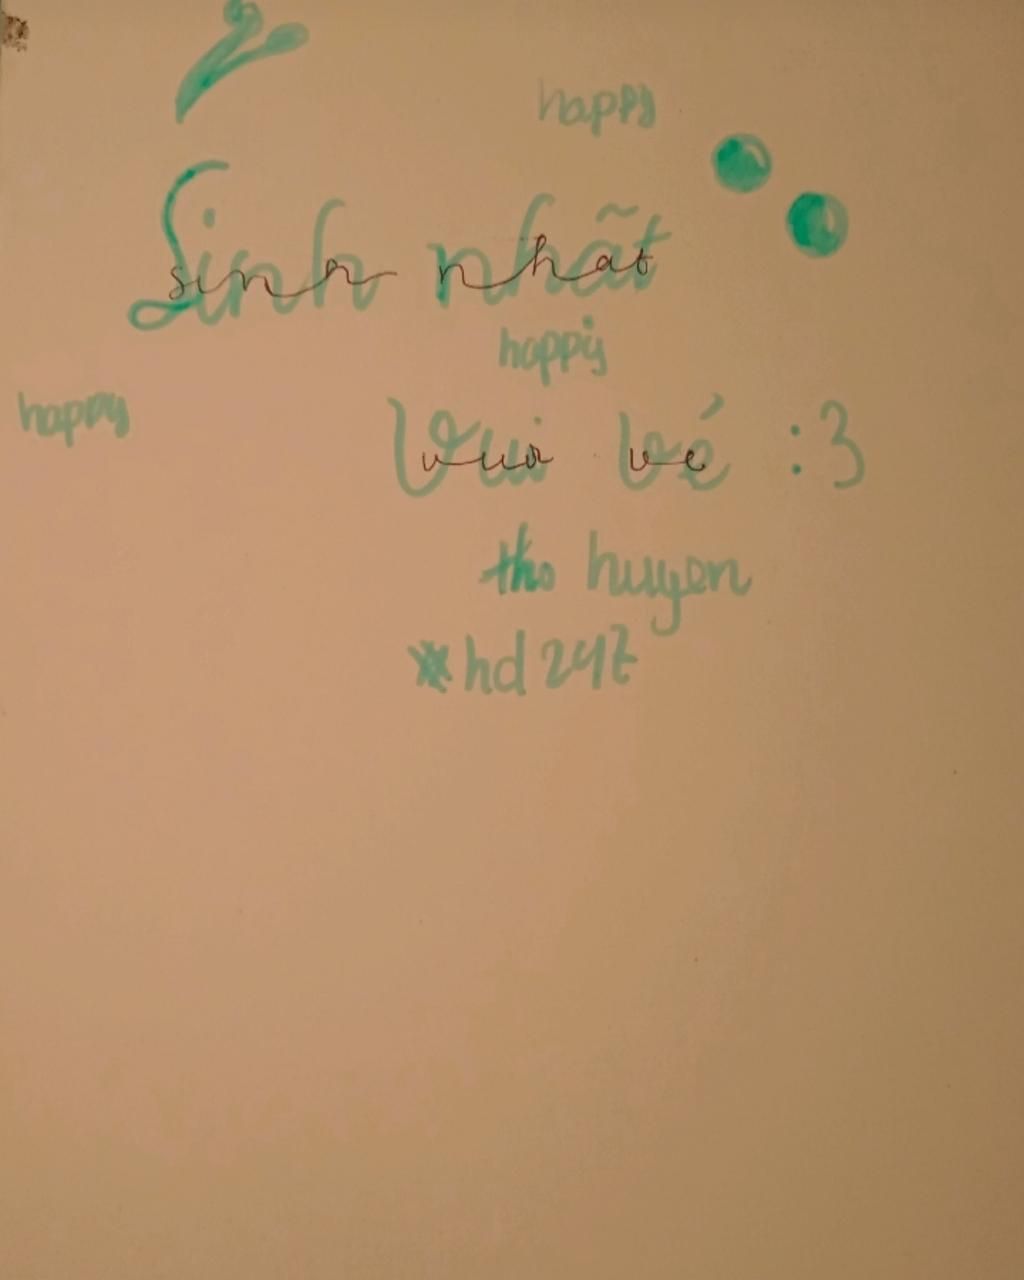 happy
Sinh nhãt
sinh nhat
happy
happy
Vui vé :3
vui ve
tho huyen
hd 247